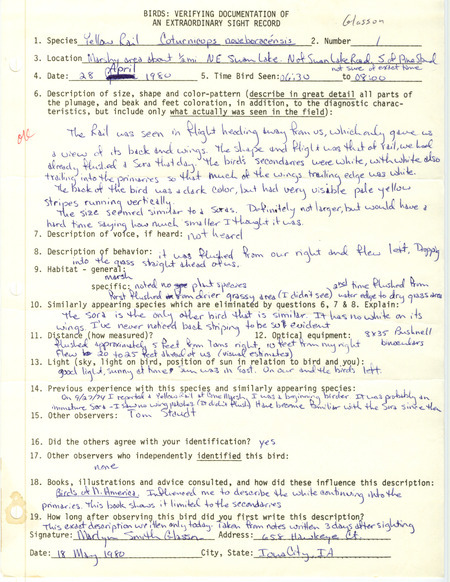 BIRDS: VERIFYING DOCUMENTATION OF
AN EXTRAORDINARY SIGHT RECORD
Glasson
1. Species Yellow Rail Coturnicops noveboracensis 2. Number 1
3. Location Marshy area about ½mi NE Swan Lake. Not Swan Lake Road, S of
not sure of exact name
4. Date: 28 April 1980 5. Time Bird Seen: 06:30 to 08:00
6. Description of size, shape and color-pattern (describe in great detail all parts of
the plumage, and beak and feet coloration, in addition, to the diagnostic charac-
teristics, but include only what actually was seen in the field):
The Rail was seen in flight heading away from us, which only gave us
a view of its back and wings. The shape and flight was that of rail, we had
already flushed a Sora that day. The bird's secondaries were white, with white also
trailing into the primaries so that much of the wings trailing edge was white.
The back of the bird was a dark color, but had very visible pale yellow
stripes running vertically.
The size seemed similar to a Soras. Definitely not larger, but would have a
hard time saying how much smaller I thought it was.
7. Description of voice, if heard: not heard
8. Description of behavior: it was flushed from our right and flew left, Dropping
into the grass straight ahead of us.
9. Habitat - general: marsh
specific: noted no plant species 2nd time flushed from
First flushed from drier grassy area (I didn't see) water edge to dry grass area
10. Similarly appearing species which are eliminated by questions 6, 7 & 8. Explain.
The Sora is the only other bird that is similar. It has no white on its
wings. I've never noticed back striping to be so evident
11. Distance (how measured)? 12. Optical equipment: 8x35 Bushnell
binoculars
flushed approximately 5 feet from Tom's right, 10 feet from my right
Flew to 20 to 25 feet ahead of us (visual estimates)
13. Light (sky, light on bird, position of sun in relation to bird and you):
good light, sunny at time sun was in East. On our and the bird's left.
14. Previous experience with this species and similarly appearing species:
On 9/27/74 I reported a Yellow Rail at Cone Marsh, I was a beginning birder. It was probably an
immature Sora - I saw no wing patches (it didn't flush) Have become familiar with the Sora since then
15. Other observers: Tom Staudt
16. Did the others agree with your identification? yes
17. Other observers who independently identified this bird:
none
18. Books, illustrations and advice consulted, and how did these influence this description:
Birds of N. America. Influenced me to describe the white continuing into the
primaries. This book shows it limited to the secondaries
19. How long after observing this bird did you first write this description?
This exact description written only today. Taken from notes written 3 days after sighting
Signature: Marlyn Smith Glasson Address: 658 Hawkeye Ct.
Date: 18 May 1980 City, State: Iowa City, IA